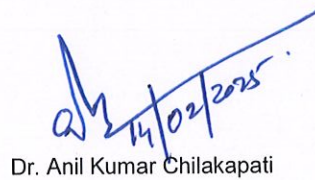 14/02/2025
Dr. Anil Kumar Chilakapati